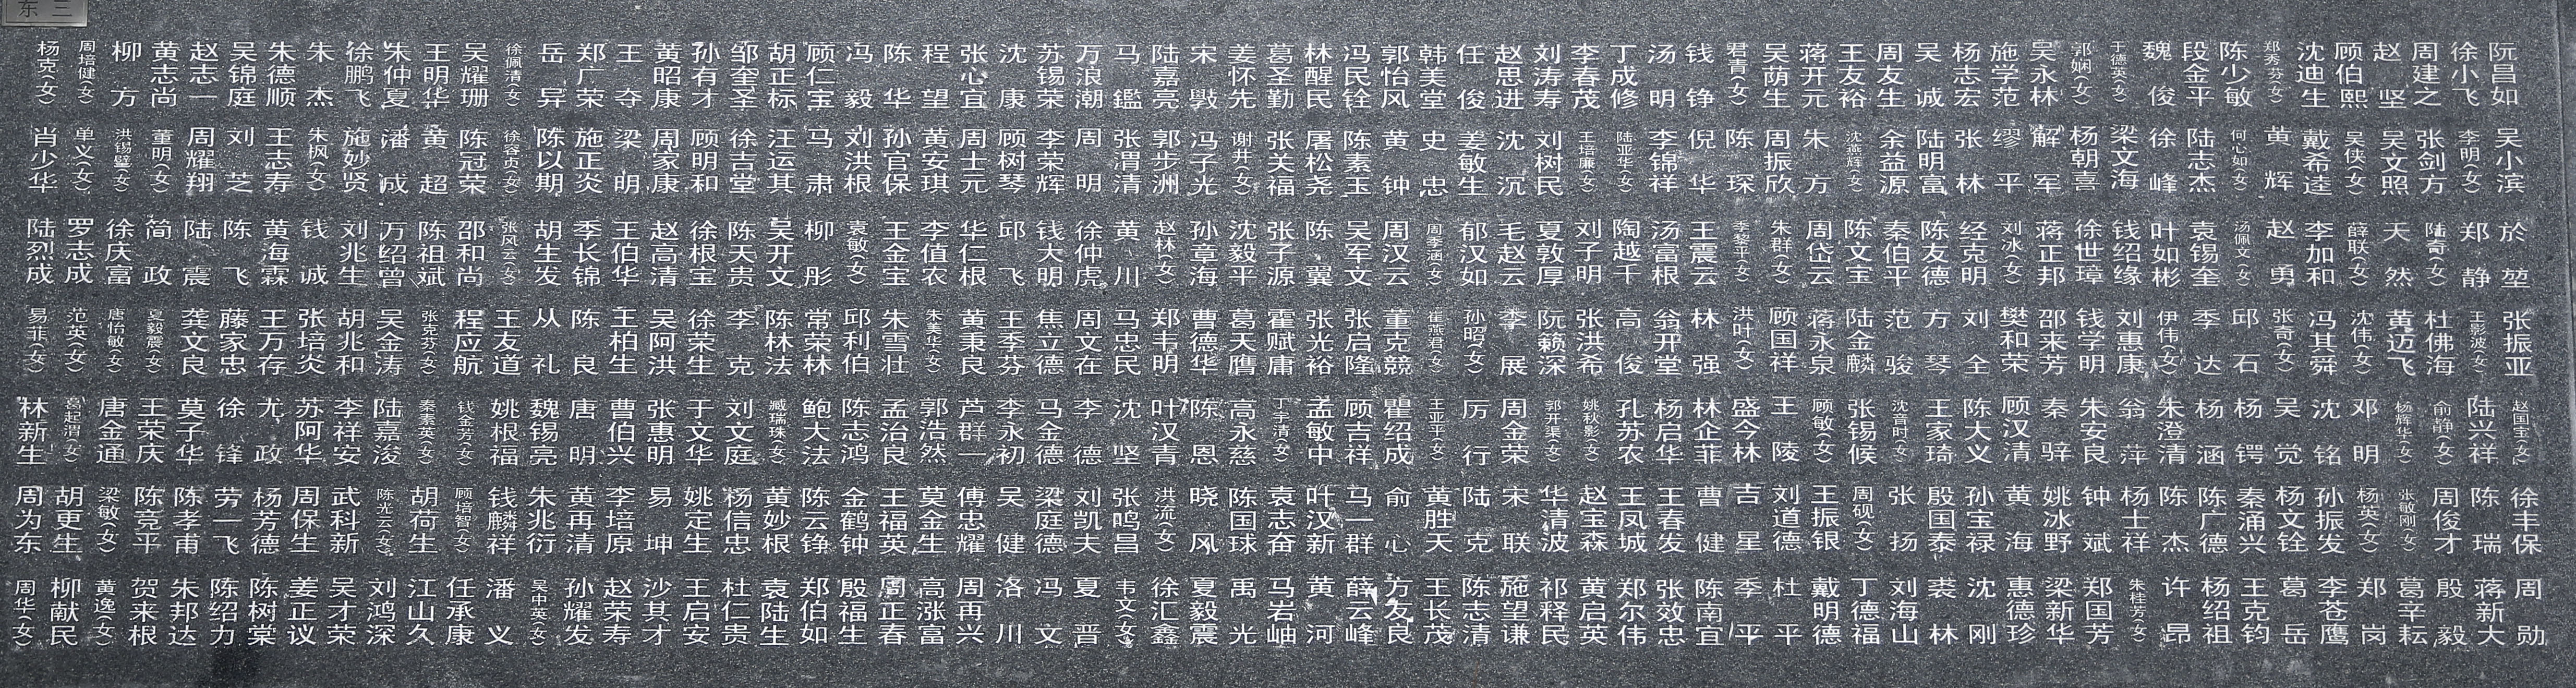 东三
杨克(女) 周培健(女) 柳方 黄志尚 赵志一 吴锦庭 朱德顺 朱杰 徐鹏飞 朱仲夏 王明华 吴耀珊 徐佩清(女) 岳昇 郑广荣 王夺 黄昭康 孙有才 邹奎圣 胡正标 顾仁宝 冯毅 陈华 程望 张心宜 沈康 苏锡荣 万浪潮 马鑑 陆嘉亮 宋斅 姜怀先 葛圣勤 林醒民 冯民铨 郭怡风 韩美堂 任俊 赵思进 刘涛寿 李春茂 丁成修 汤明 钱铮 君青(女) 吴荫生 蒋开元 王友裕 周友生 吴诚 杨志宏 施学范 吴永林 郭娴(女) 于德英(女) 魏俊 段金平 陈少敏 郑秀芬(女) 沈迪生 顾伯熙 赵坚 周建之 徐小飞 阮昌如
肖少华 单义(女) 洪锡璧(女) 董明(女) 周耀翔 刘芝 王志寿 朱枫(女) 施妙贤 潘成 黄超 陈冠荣 徐容贞(女) 陈以期 施正炎 梁明 周家康 顾明和 徐吉堂 汪运其 马肃 刘洪根 孙官保 黄安琪 周士元 顾树琴 李荣辉 周明 张渭清 郭步洲 冯子光 谢井(女) 张关福 屠松尧 陈素玉 黄钟 史忠 姜敏生 沈沉 刘树民 王培廉(女) 陆亚华(女) 李锦祥 倪华 陈琛 周振欣 朱方 沈燕辉(女) 余益源 陆明富 张林 缪平 解军 杨朝喜 梁文海 徐峰 陆志杰 何心如(女) 黄辉 戴希逵 吴侠(女) 吴文照 张剑方 李明(女) 吴小滨
陆烈成 罗志成 徐庆富 简政 陆震 陈飞 黄海霖 钱诚 刘兆生 万绍曾 陈祖斌 邵和尚 张风云(女) 胡生发 季长锦 王伯华 赵高清 徐根宝 陈天贵 吴开文 柳彤 袁敏(女) 王金宝 李值农 华仁根 邱飞 钱大明 徐仲虎 黄川 赵林(女) 孙章海 沈毅平 张子源 陈翼 吴军文 周汉云 周季涵(女) 郁汉如 毛赵云 夏敦厚 刘子明 陶越千 汤富根 王震云 季黎平(女) 朱群(女) 周岱云 陈文宝 秦伯平 陈友德 经克明 刘冰(女) 蒋正邦 徐世璋 钱绍缘 叶如彬 袁锡奎 汤佩文(女) 赵勇 李加和 薛联(女) 天然 陆奇(女) 郑静 於堃
易菲(女) 范英(女) 唐怡敏(女) 夏毅震(女) 龚文良 藤家忠 王万存 张培炎 胡兆和 吴金涛 张克芬(女) 程应航 王友道 从礼 陈良 王柏生 吴阿洪 徐荣生 李克 陈林法 常荣林 邱利伯 朱雪壮 朱美华(女) 黄秉良 王季芬 焦立德 周文在 马忠民 郑韦明 曹德华 葛天鹰 霍赋庸 张光裕 张启隆 董克競 崔燕君(女) 孙昭(女) 李展 阮籁深 张洪希 高俊 翁开堂 林强 洪叶(女) 顾国祥 蒋永泉 陆金麟 范骏 方琴 刘全 樊和荣 邵来芳 钱学明 刘惠康 伊伟(女) 季达 邱石 张奇(女) 冯其舜 沈伟(女) 黄迈飞 杜佛海 王影波(女) 张振亚
林新生 葛起渭(女) 唐金通 王荣庆 莫子华 徐锋 尤政 苏阿华 李祥安 陆嘉浚 秦素英(女) 钱金芳(女) 姚根福 魏锡亮 唐明 曹伯兴 张惠明 于文华 刘文庭 臧瑞珠(女) 鲍大法 陈志鸿 孟治良 郭浩然 芦群一 李永初 马金德 李德 沈坚 叶汉青 陈恩 高永慈 丁宇清(女) 孟敏中 顾吉祥 瞿绍成 王亚平(女) 厉行 周金荣 郭开渠(女) 姚秋影(女) 孔苏农 杨启华 林企菲 盛今林 王陵 顾敏(女) 张锡候 沈音时(女) 王家琦 陈大义 顾汉清 秦骍 朱安良 翁萍 朱澄清 杨涵 杨锷 吴觉 沈铭 邓明 杨辉华(女) 俞静(女) 陆兴祥 赵国宝(女)
周为东 胡更生 梁敏(女) 陈竞平 陈孝甫 劳一飞 杨芳德 周保生 武科新 陈光云(女) 胡荷生 顾培智(女) 钱麟祥 朱兆衍 黄再清 李培原 易坤 姚定生 杨信忠 黄妙根 陈云铮 金鹤钟 王福英 莫金生 傅忠耀 吴健 梁庭德 刘凯夫 张鸣昌 洪流(女) 晓风 陈国球 袁志奋 叶汉新 马一群 俞心 黄胜天 陆克 宋联 华清波 赵宝森 王凤城 王春发 曹健 吉星 刘道德 王振银 周砚(女) 张扬 殷国泰 孙宝禄 黄海 姚冰野 钟斌 杨士祥 陈杰 陈广德 秦涌兴 杨文铨 孙振发 杨英(女) 张敏刚(女) 周俊才 陈瑞 徐丰保
周华(女) 柳献民 黄逸(女) 贺来根 朱邦达 陈绍力 陈树棠 姜正议 吴才荣 刘鸿深 江山久 任承康 潘义 吴中英(女) 孙耀发 赵荣寿 沙其才 王启安 杜仁贵 袁陆生 郑伯如 殷福生 周正春 高涨富 周再兴 洛川 冯文 夏晋 韦文(女) 徐汇鑫 夏毅震 禹光 马岩岫 黄河 薛云峰 方友良 王长茂 陈志清 施望谦 祁释民 黄启英 郑尔伟 张效忠 陈南宜 季平 杜平 戴明德 丁德福 刘海山 裘林 沈刚 惠德珍 梁新华 郑国芳 朱桂芳(女) 许昂 杨绍祖 王克钧 葛岳 李苍鹰 郑岗 葛辛耘 殷毅 蒋新大 周勋